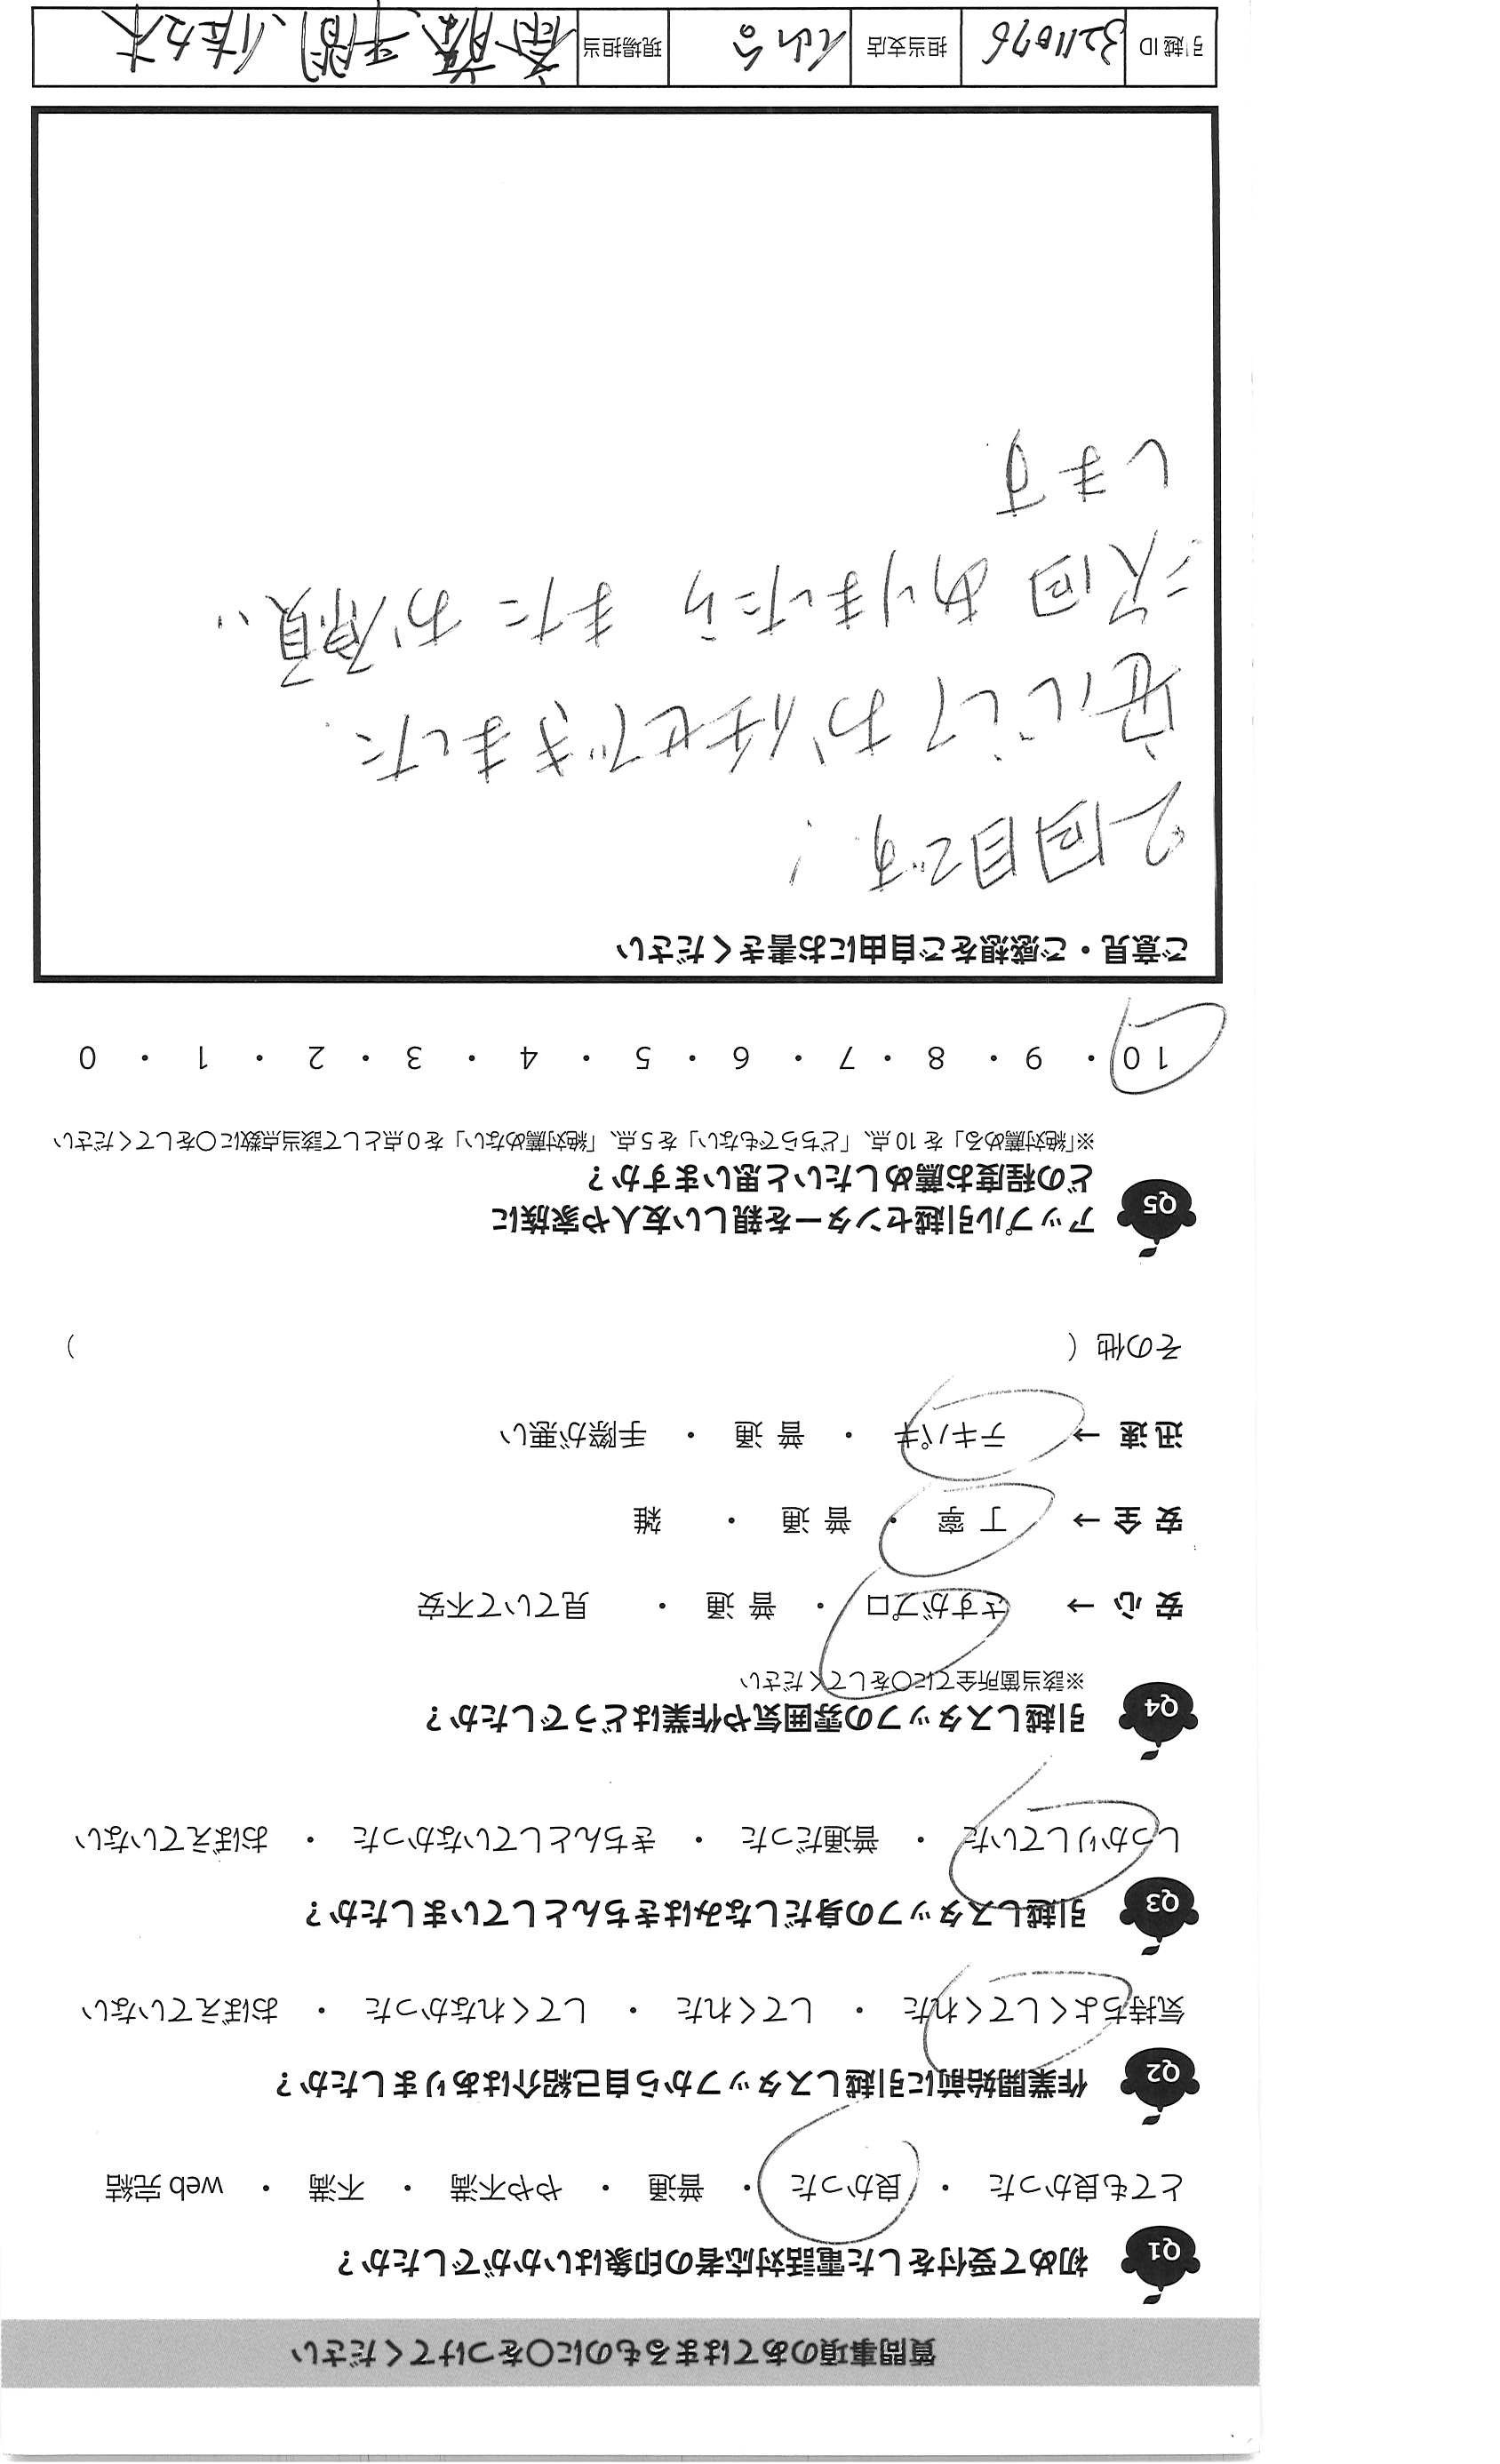 質問事項のあてはまるものに〇をつけてください
Q1 初めて受付をした電話対応者の印象はいかがでしたか？
とても良かった ・ 良かった ・ 普通 ・ やや不満 ・ 不満 ・ web 完結
Q2 作業開始前に引越しスタッフから自己紹介はありましたか？
気持ちよくしてくれた ・ してくれた ・ してくれなかった ・ おぼえていない
Q3 引越しスタッフの身だしなみはきちんとしていましたか？
しっかりしていた ・ 普通だった ・ きちんとしていなかった ・ おぼえていない
Q4 引越しスタッフの雰囲気や作業はどうでしたか？
※該当箇所全てに〇をしてください
安心→ さすがプロ ・ 普通 ・ 見ていて不安
安全→ 丁寧 ・ 普通 ・ 雑
迅速→ テキパキ ・ 普通 ・ 手際が悪い
その他（ ）
Q5 アップル引越センターを親しい友人や家族に
どの程度お薦めしたいと思いますか？
※「絶対薦める」を10点、「どちらでもない」を5点、「絶対薦めない」を0点として該当点数に〇をしてください
10 ・ 9 ・ 8 ・ 7 ・ 6 ・ 5 ・ 4 ・ 3 ・ 2 ・ 1 ・ 0
ご意見・ご感想をご自由にお書きください
2回目です！
安心してお任せできました.
次回ありましたらまたお願い
します
引越ID 3211096 担当支店 仙台 現場担当 斎藤 平間、佐々木